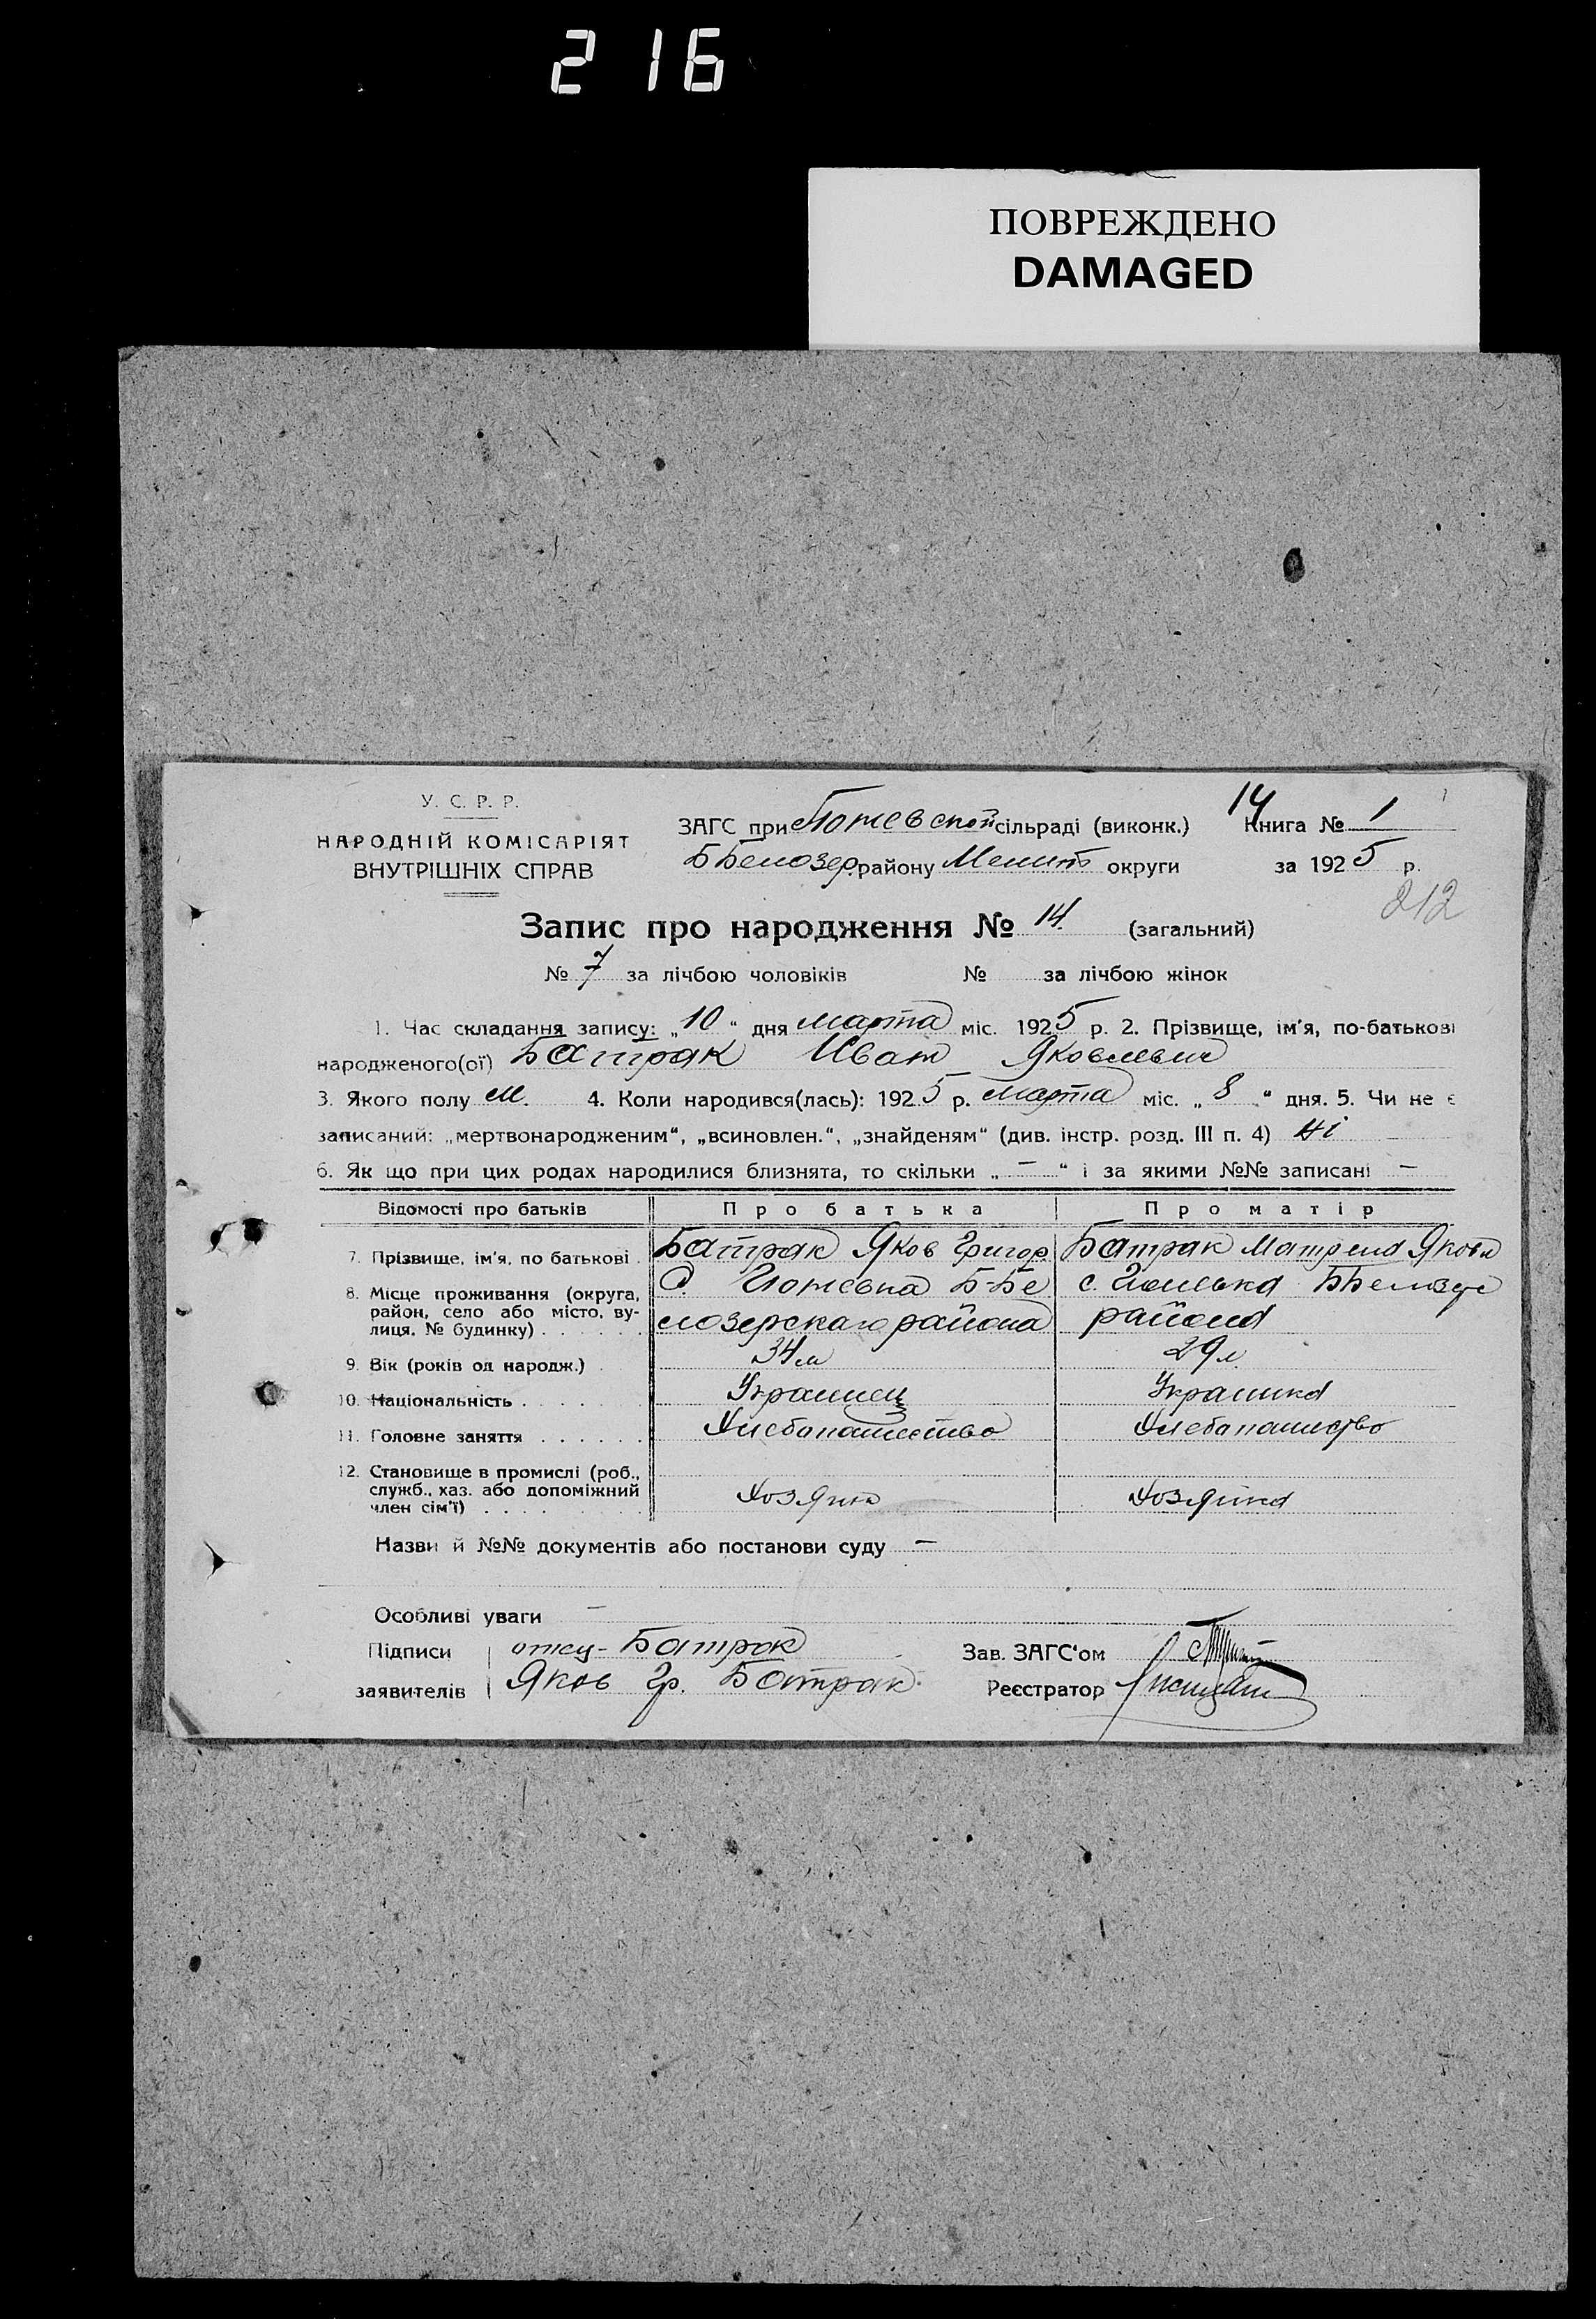 216
ПОВРЕЖДЕНО
DAMAGED
У. С. Р. Р.
НАРОДНІЙ КОМІСАРІЯТ
ВНУТРІШНІХ СПРАВ
ЗАГС при сільраді (виконк.)
14
Книга № 1
ББелозер. району Мелит округи
за 1925 р.
212
Запис про народження № 14. (загальний)
№ 7 за лічбою чоловіків № за лічбою жінок
1. Час складання запису: „10" дня марта міс. 1925 р. 2. Прізвище, ім'я, по-батькові
народженого(ої) Батрак Иван Яковлевич
3. Якого полу м. 4. Коли народився(лась): 1925 р. марта міс. „8" дня. 5. Чи не є
записаний: „мертвонародженим", „всиновлен.", „знайденям" (див. інстр. розд. III п. 4) Ні
6. Як що при цих родах народилися близнята, то скільки „ — " і за якими №№ записані —
Відомості про батьків Про батька Про матір
7. Прізвище, ім'я, по батькові . Батрак Яков Григор Батрак Матрена Яковл
8. Місце проживання (округа, С. Б-Бе с. ББелозер
район, село або місто, ву- лозерскаго района района
лиця, № будинку) . . . . . .
9. Вік (років од народж.) . 34 л 29 л
10. Національність . . . . Украинец Украинка
11. Головне заняття . . . . . . Хлебопашество Хлебопашество
12. Становище в промислі (роб.,
служб., хаз. або допоміжний Хозяин Хозяйка
член сім'ї) . . . . . . . . .
Назви й №№ документів або постанови суду —
Особливі уваги —
Підписи отец - Батрак Зав. ЗАГС'ом
заявителів Яков Гр. Батрак. Реєстратор